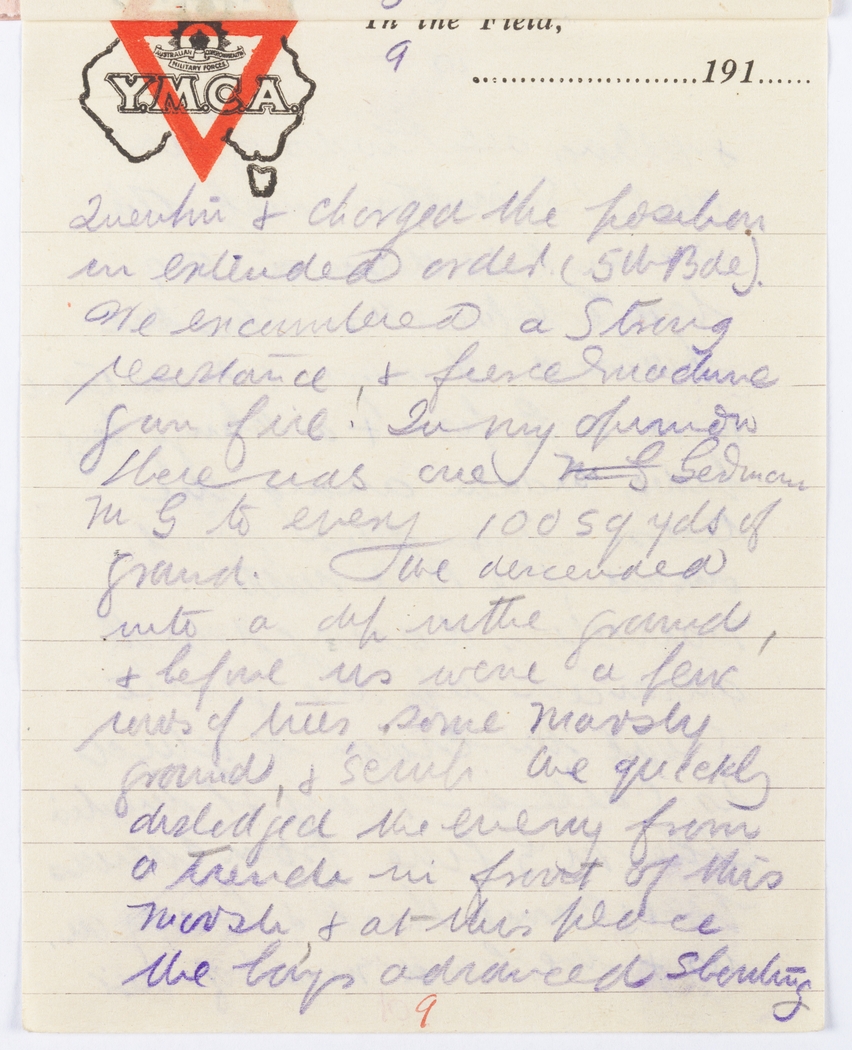 In the Field,
9
AUSTRALIAN COMMONWEALTH
MILITARY FORCES
Y.M.C.A.
....................... 191......
Quentin & charged the position
in extended order (5th Bde).
We encountered a Strong
resistance, & fierce machine
gun fire! In my opinion
there was one M G German
M G to every 100 sq yds of
ground. We descended
into a dip in the ground,
& before us were a few
rows of trees some marshy
ground, & scrub. We quickly
disledged the enemy from
a trench in front of this
marsh, & at this place
the boys advanced shouting
9